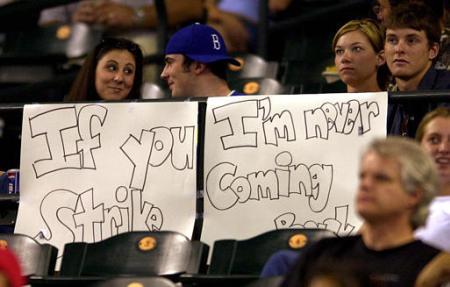 B
If you
Strike
I'm never
Coming
Back